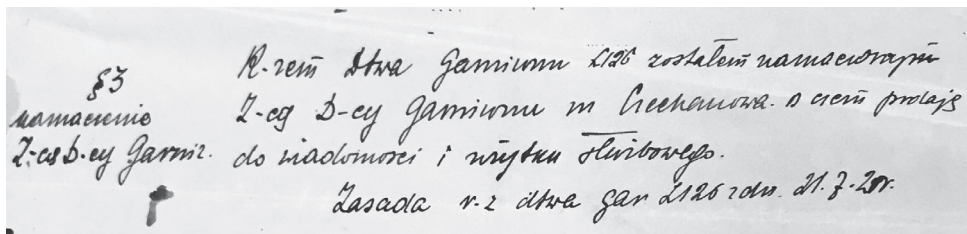 §3
namacienie
Z-cę D-cy Garniz.
R-zem Dtwa Garnizonu L126 zostałem namacionym
Z-cą D-cy Garnizonu m Ciechanowa. o czem podaję
do wiadomości i użytku służbowego.
Zasada r-z dtwa gar L126 z dn. 21.7.20r.